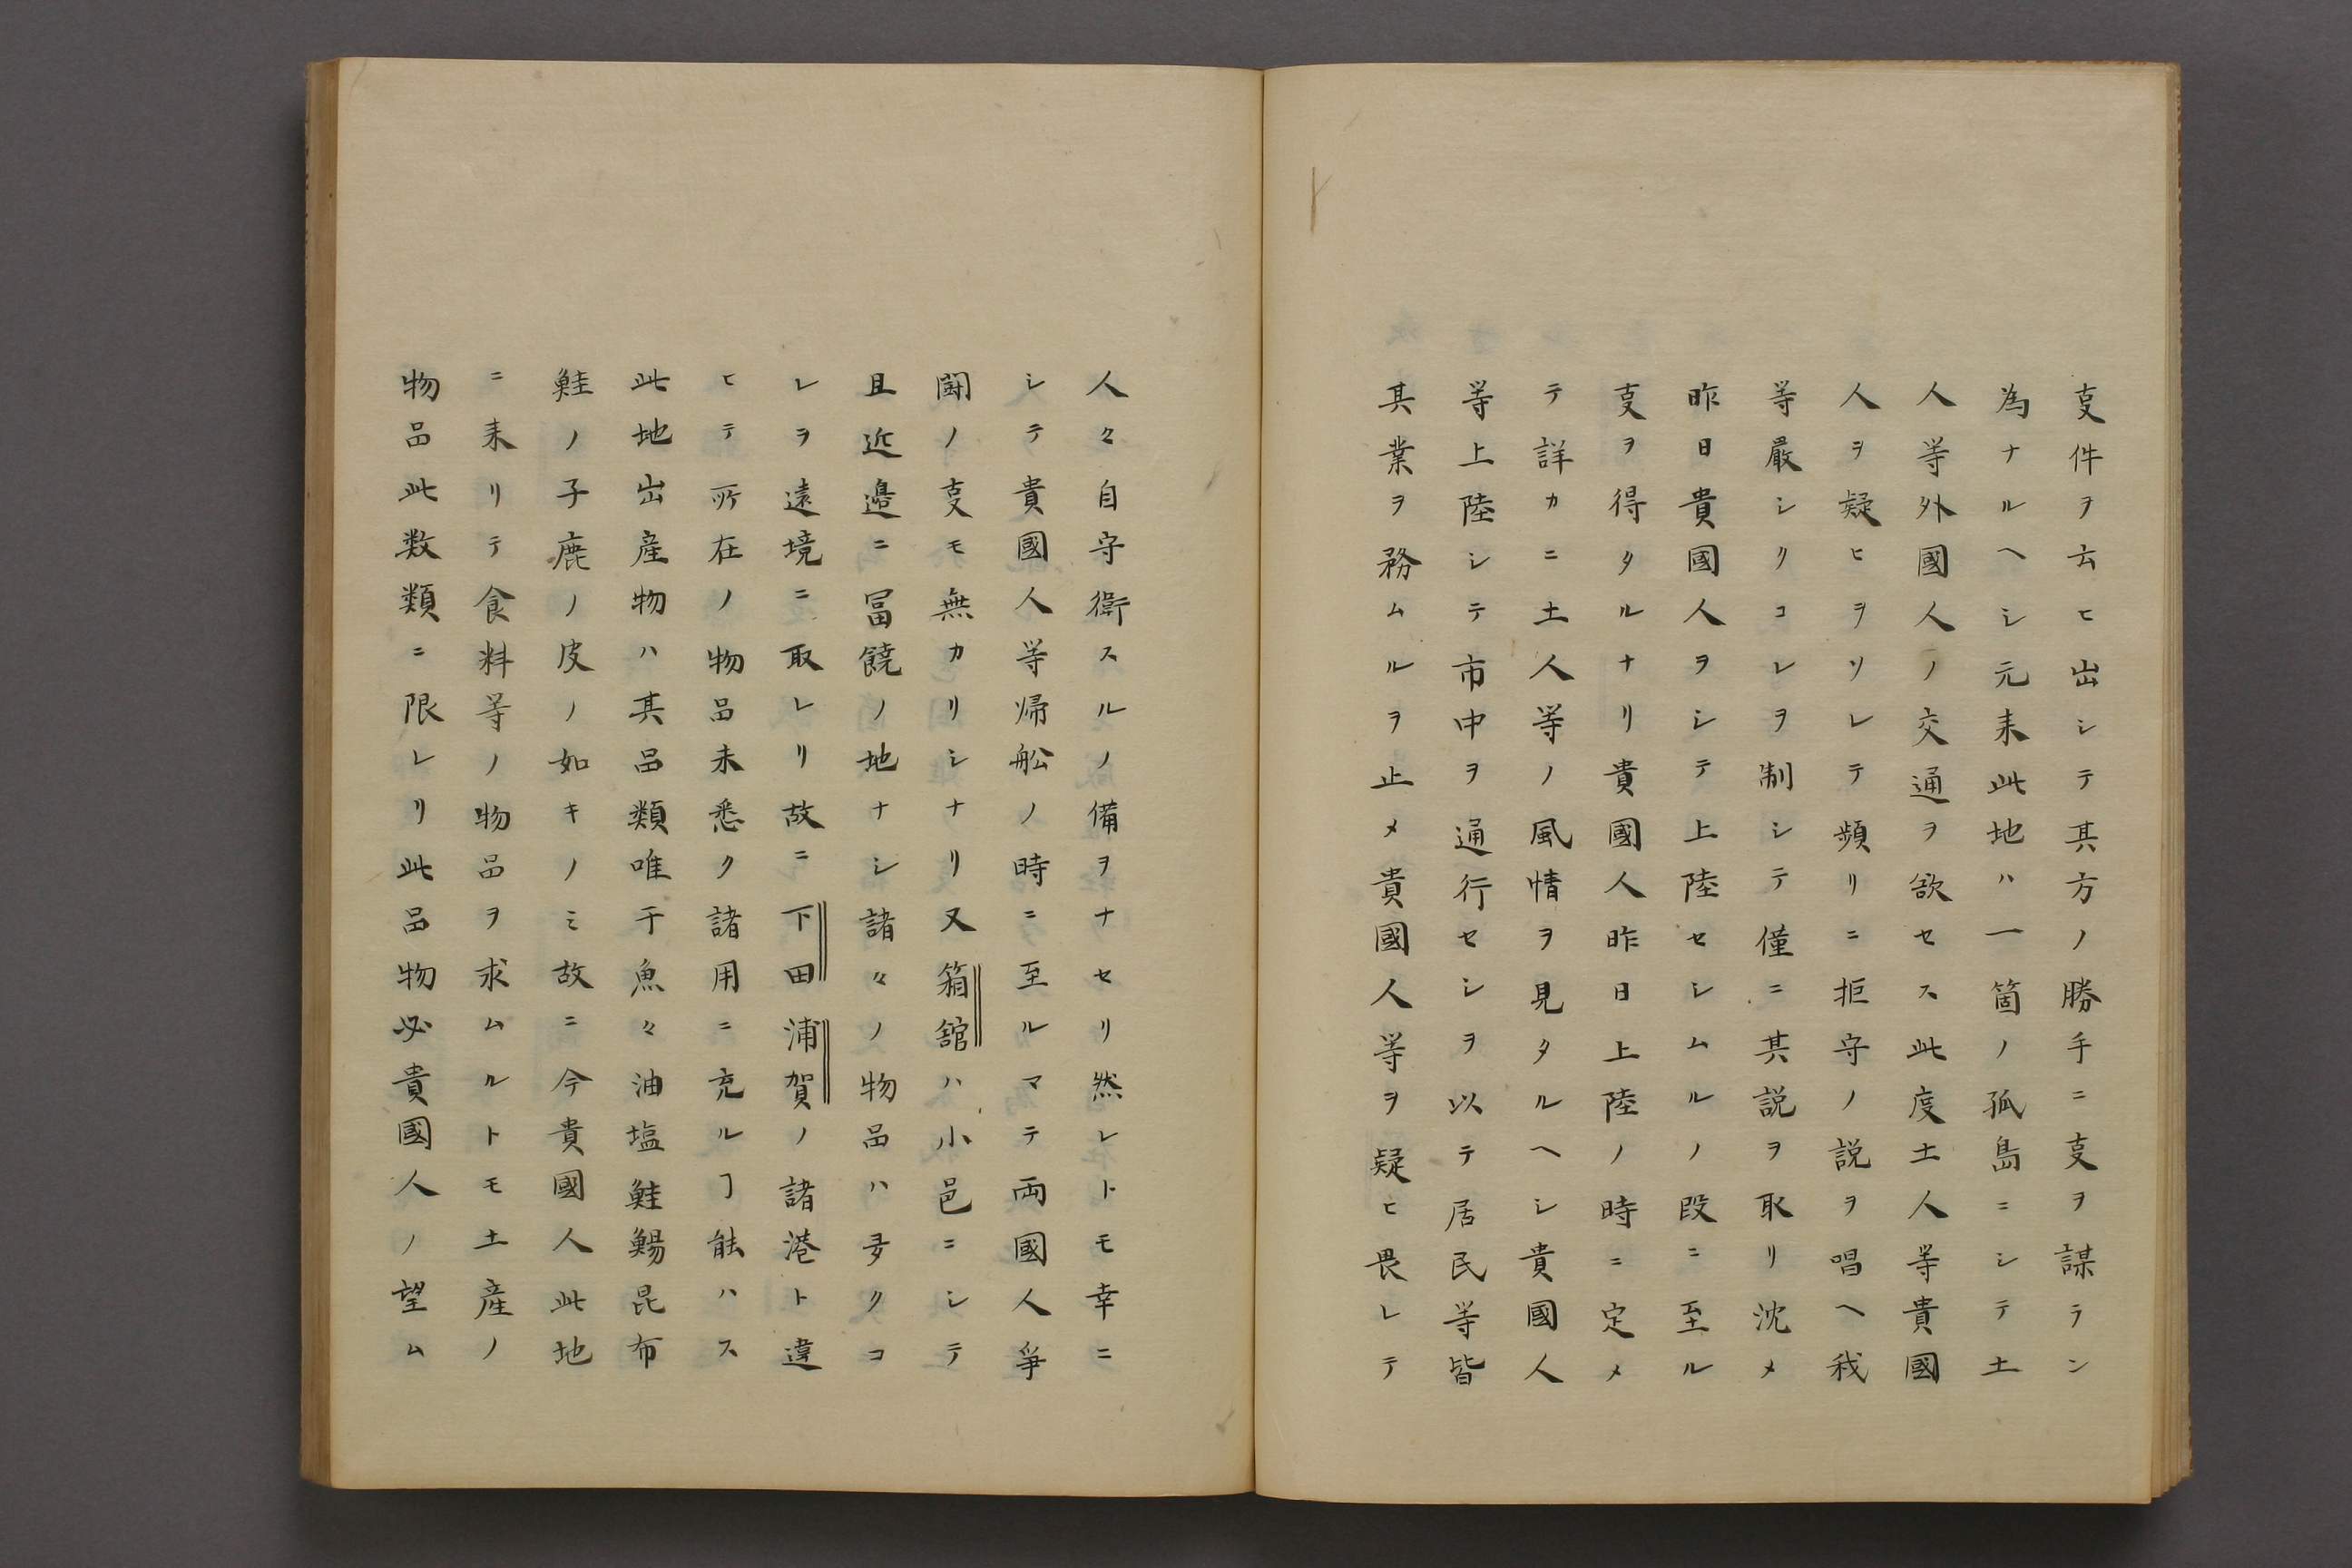 叓件ヲ云ヒ出シテ其方ノ勝手ニ叓ヲ謀ラン
為ナルヘシ元来此地ハ一箇ノ孤島ニシテ土
人等外國人ノ交通ヲ欲セス此度土人等貴國
人ヲ疑ヒヲソレテ頻リニ拒守ノ説ヲ唱ヘ我
等嚴シリコレヲ制シテ僅ニ其説ヲ取リ沈メ
昨日貴國人ヲシテ上陸セシムルノ段ニ至ル
叓ヲ得タルナリ貴國人昨日上陸ノ時ニ定メ
テ詳カニ土人等ノ風情ヲ見タルヘシ貴國人
等上陸シテ市中ヲ通行セシヲ以テ居民等皆
其業ヲ務ムルヲ止メ貴國人等ヲ疑ヒ畏レテ
人々自守衛スルノ備ヲナセリ然レトモ幸ニ
シテ貴國人等帰舩ノ時ニ至ルマテ両國人爭
闘ノ叓モ無カリシナリ又箱舘ハ小邑ニシテ
且近邉ニ冨饒ノ地ナシ諸々ノ物品ハ多クコ
レヲ遠境ニ取レリ故ニ下田浦賀ノ諸港ト違
ヒテ所在ノ物品未悉ク諸用ニ充ルヿ能ハス
此地出産物ハ其品類唯干魚々油塩鮭鰑昆布
鮭ノ子鹿ノ皮ノ如キノミ故ニ今貴國人此地
ニ来リテ食料等ノ物品ヲ求ムルトモ土産ノ
物品此数類ニ限レリ此品物必貴國人ノ望ム